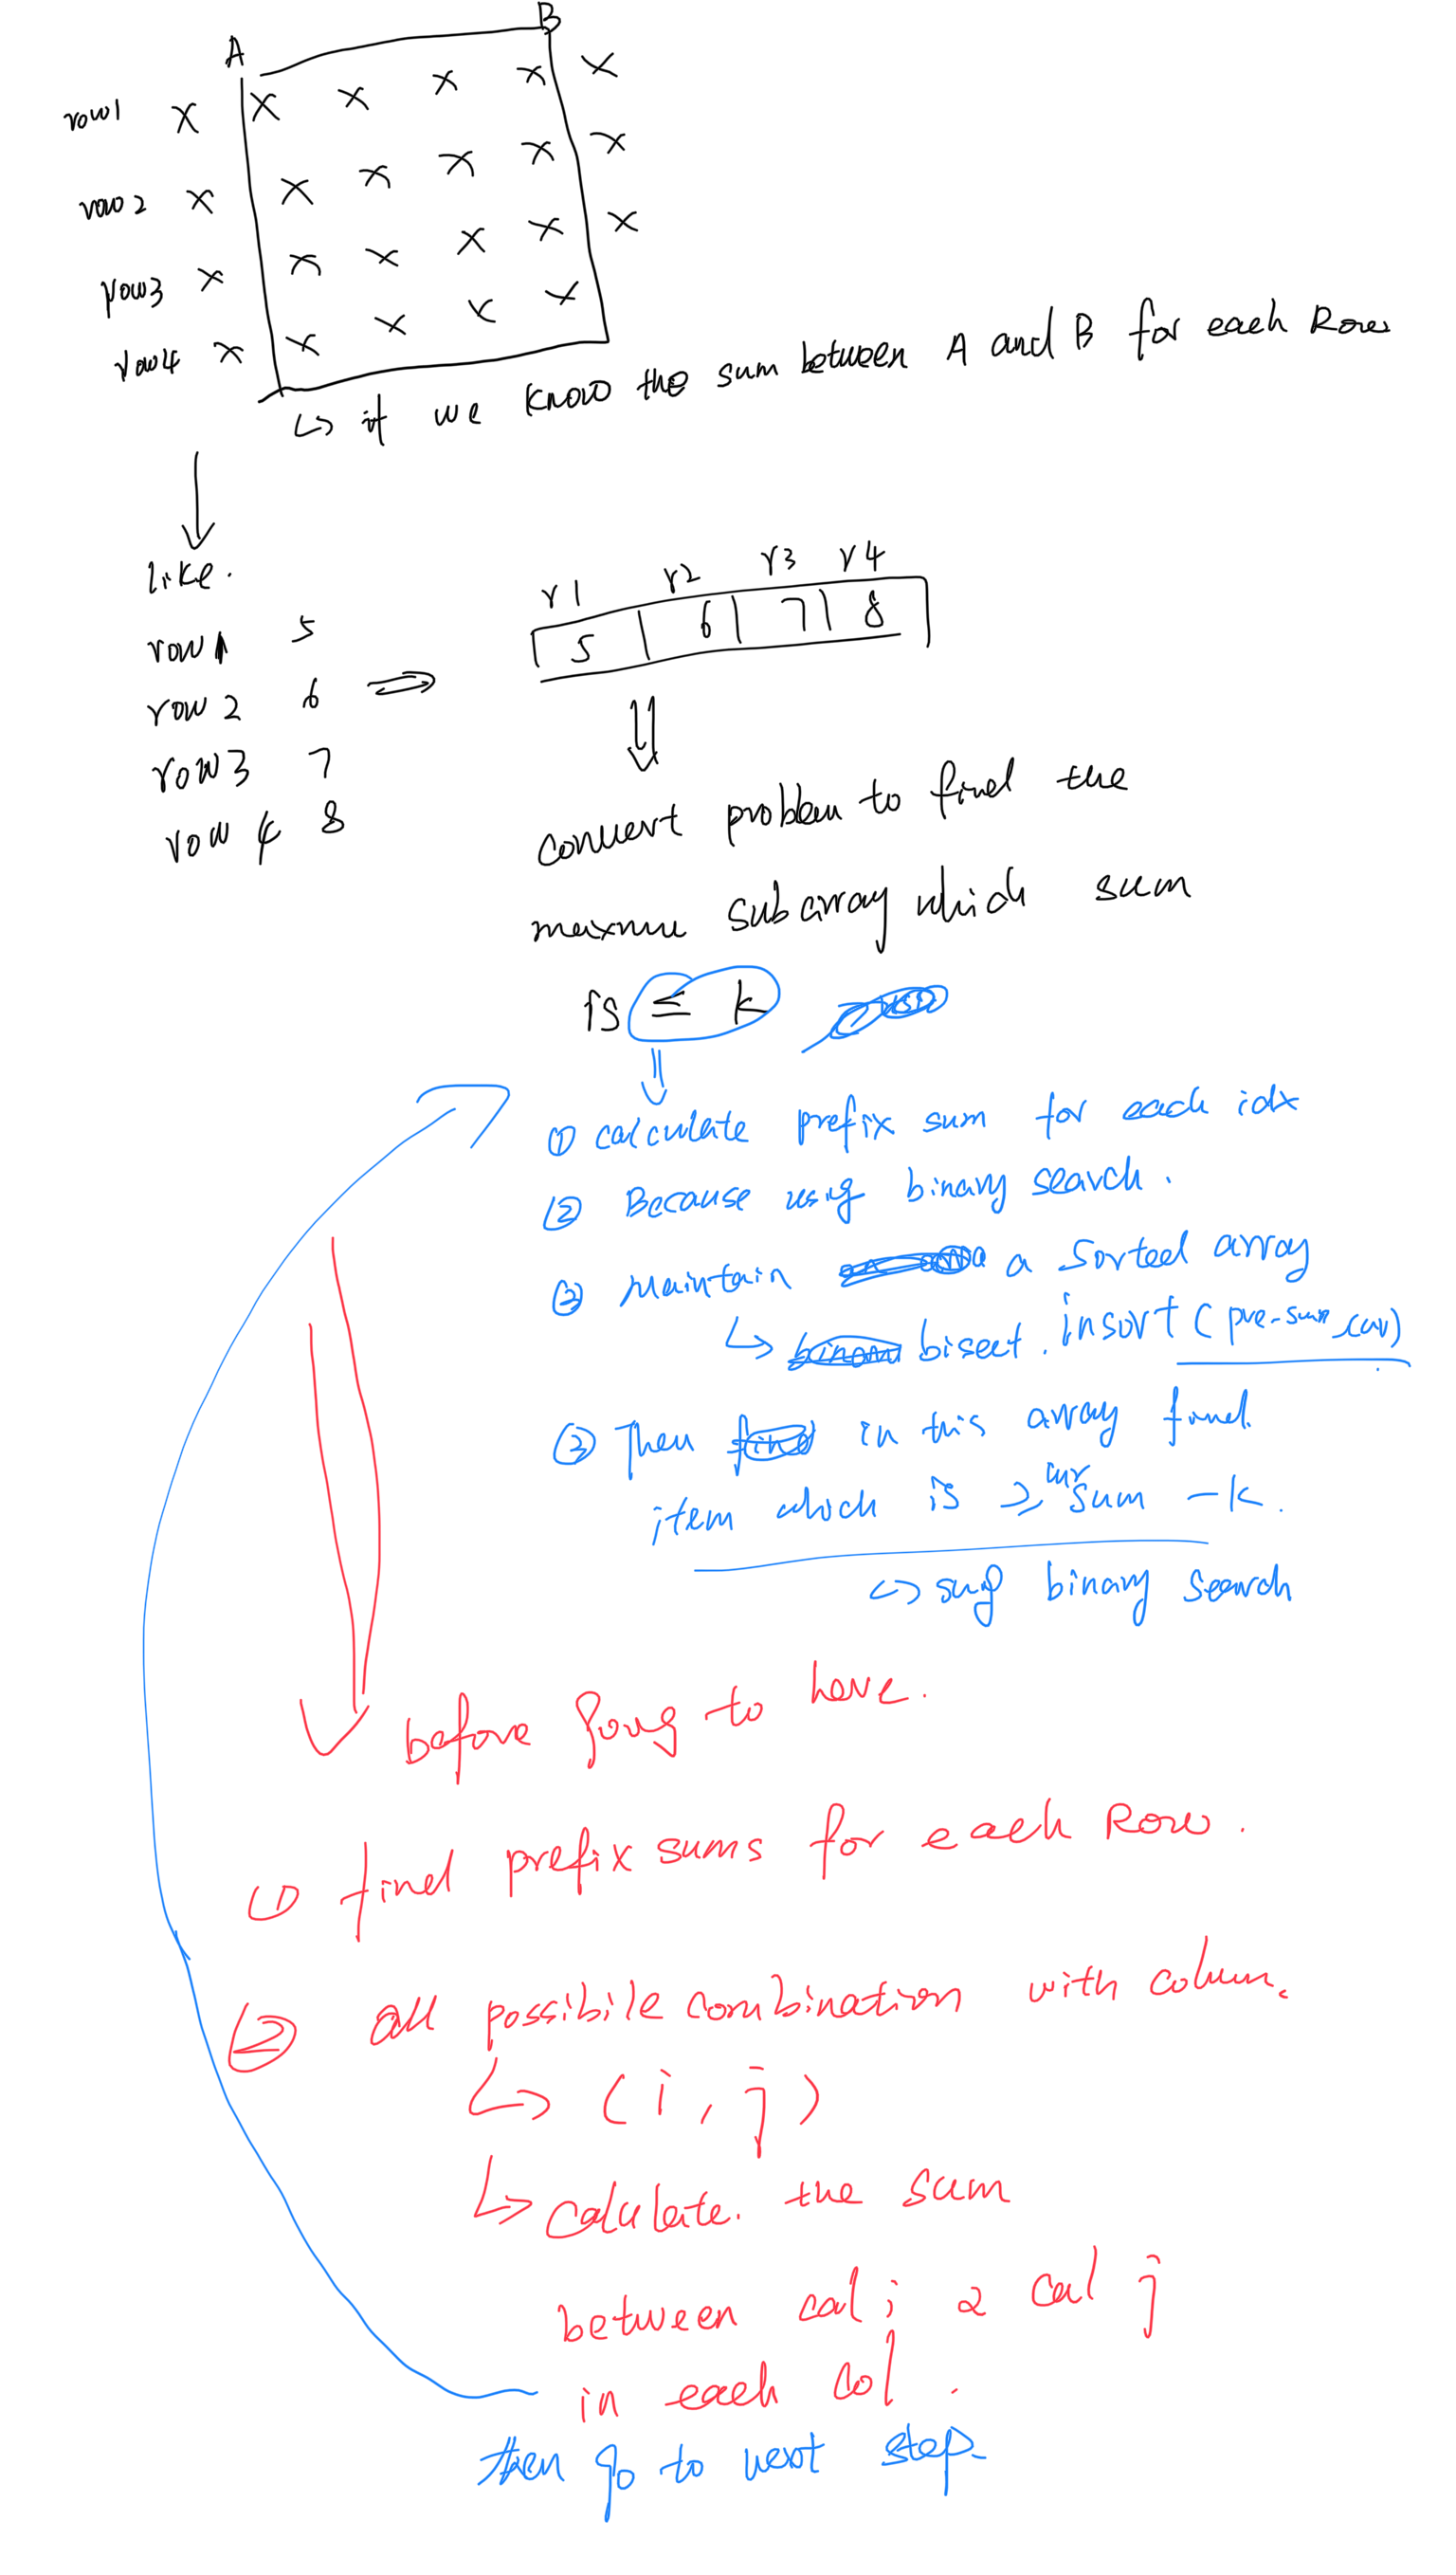 A B
row1 x x x x x x
row 2 x x x x x x
row3 x x x x x x
row4 x x x x x
↳ if we know the sum between A and B for each Row
like.
row 1 5
row 2 6
row3 7
row 4 8
r1 r2 r3 r4
5 6 7 8
convert problem to find the
subarray which sum
is ≤ k
① calculate prefix sum for each idx
② Because using binary search.
② Maintain a sorted array
↳ bisect.insort(pre-sum_cur)
③ Then in this array find
item which is ≥ cur sum - k.
binary search
before going to here.
① find prefix sums for each Row.
② all possibile combination with column.
↳ (i, j)
↳ calulate. the sum
between col i 2 col j
in each col.
then go to next step